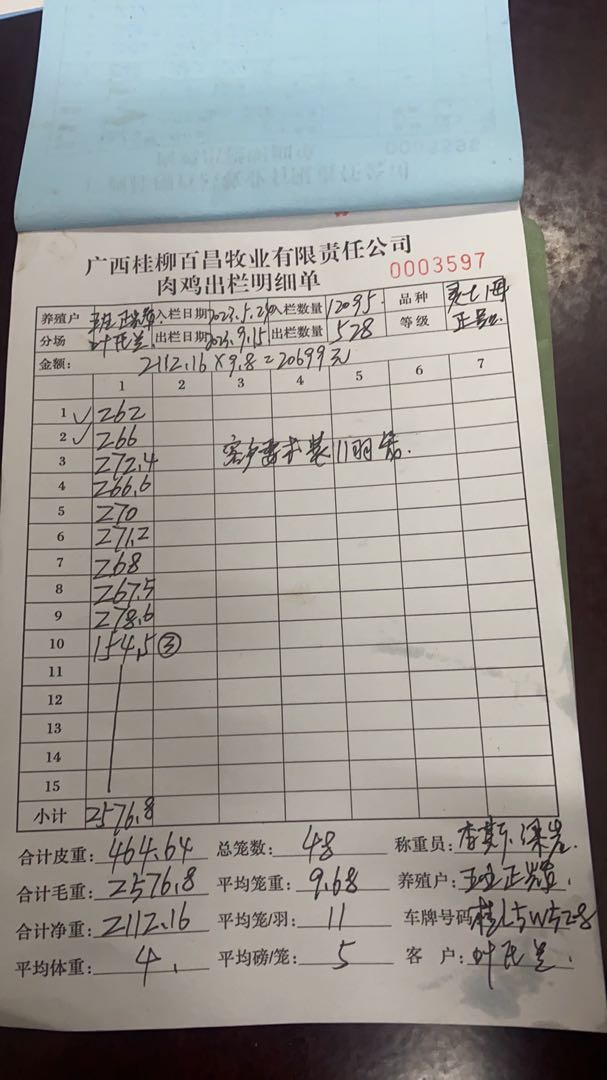 广西桂柳百昌牧业有限责任公司
肉鸡出栏明细单
0003597
养殖户 正 入栏日期 2023.5.2 入栏数量 12095 品种
分场 叶氏兰 出栏日期 2023.9.15 出栏数量 528 等级 正
金额: 2112.16×9.8=20699元
1 2 3 4 5 6 7
1 ✓ 262
2 ✓ 266
3 272.4 客户需求装11羽笼.
4 266.6
5 270
6 271.2
7 268
8 267.5
9 278.6
10 154.5 ③
11
12
13
14
15
小计 2576.8
合计皮重: 464.64 总笼数: 48 称重员: 李
合计毛重: 2576.8 平均笼重: 9.68 养殖户: 正
合计净重: 2112.16 平均笼/羽: 11 车牌号码: 桂L5W528
平均体重: 4. 平均磅/笼: 5 客 户: 叶氏兰.